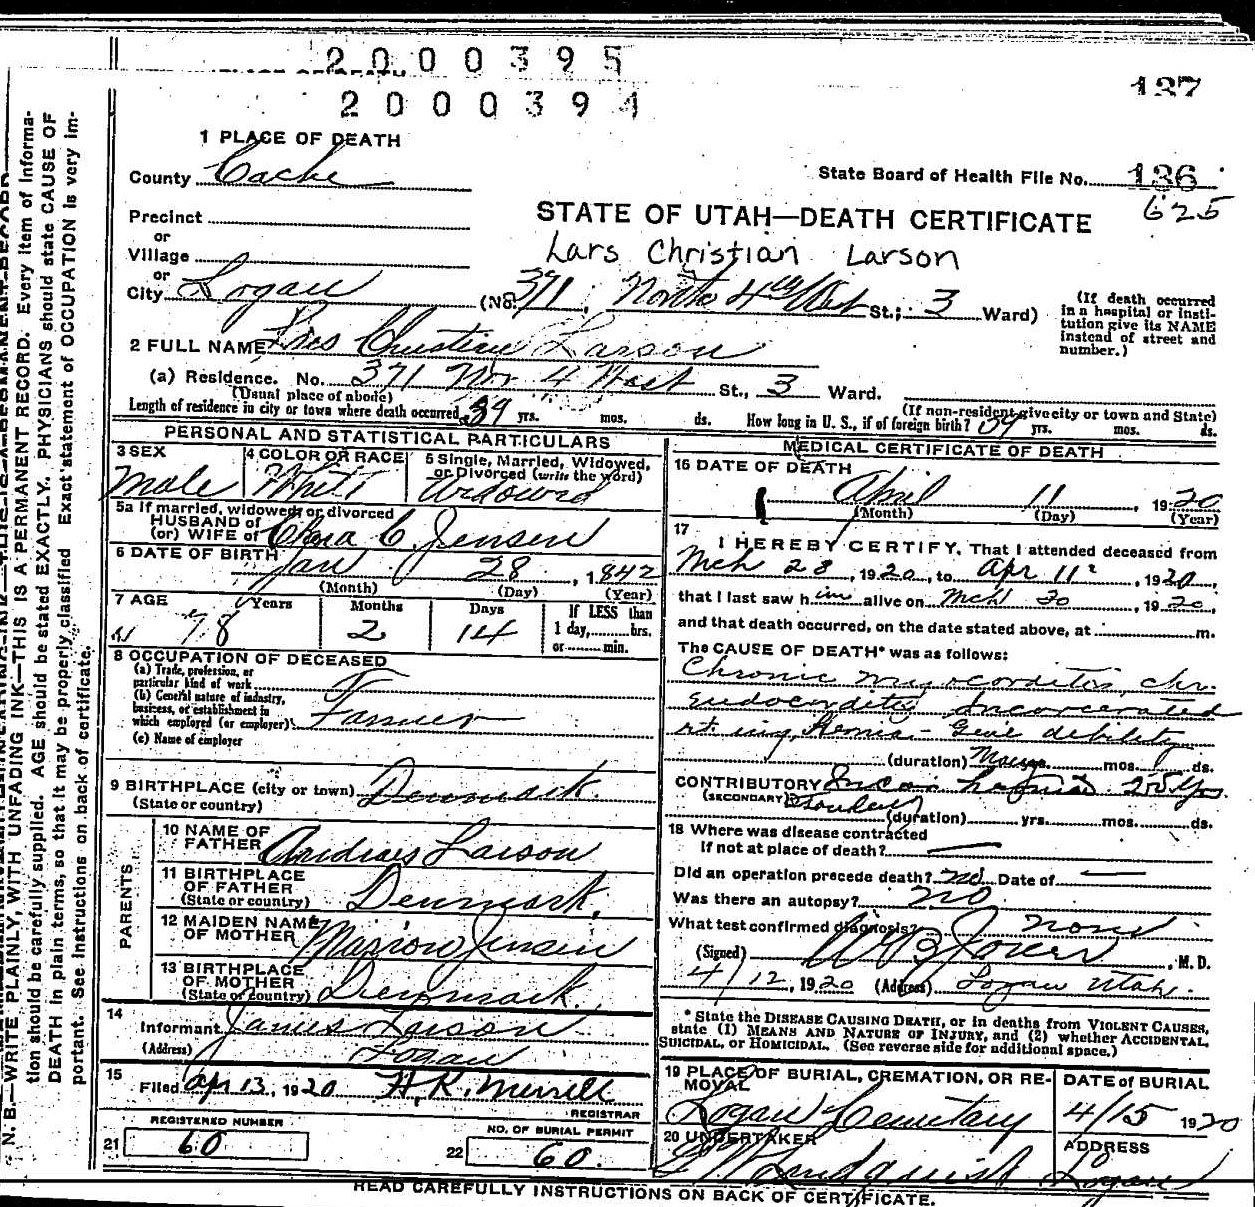 2000395
2000394
137
1 PLACE OF DEATH
County Cache
State Board of Health File No. 136
625
Precinct
or
Village
or
City Logan
STATE OF UTAH—DEATH CERTIFICATE
Lars Christian Larson
(No. 371, North 4th West St.; 3 Ward)
(If death occurred in a hospital or institution give its NAME instead of street and number.)
2 FULL NAME Lars Christian Larson
(a) Residence. No. 371 Nor 4 West St., 3 Ward.
(Usual place of abode)
(If non-resident give city or town and State)
Length of residence in city or town where death occurred 39 yrs. mos. ds. How long in U. S., if of foreign birth? 59 yrs. mos. ds.
PERSONAL AND STATISTICAL PARTICULARS
3 SEX
Male
4 COLOR OR RACE
White
5 Single, Married, Widowed, or Divorced (write the word)
Widowed
5a If married, widowed, or divorced
HUSBAND of
(or) WIFE of Clara C Jensen
6 DATE OF BIRTH
Jan 28, 1842
(Month) (Day) (Year)
7 AGE Years Months Days
78 2 14
If LESS than
1 day,........hrs.
or........min.
8 OCCUPATION OF DECEASED
(a) Trade, profession, or particular kind of work
(b) General nature of industry, business, or establishment in which employed (or employer) Farmer
(c) Name of employer
9 BIRTHPLACE (city or town) Denmark.
(State or country)
PARENTS
10 NAME OF FATHER Andreas Larson
11 BIRTHPLACE OF FATHER Denmark.
(State or country)
12 MAIDEN NAME OF MOTHER Jensen
13 BIRTHPLACE OF MOTHER Denmark.
(State or country)
14
Informant James Larson
(Address) Logan
15
Filed Apr 13, 1920 H. K. Merrill
REGISTRAR
REGISTERED NUMBER
21 60
NO. OF BURIAL PERMIT
22 60.
MEDICAL CERTIFICATE OF DEATH
16 DATE OF DEATH
April 11, 1920
(Month) (Day) (Year)
17
I HEREBY CERTIFY, That I attended deceased from
Mch 28, 1920, to Apr 11, 1920,
that I last saw him alive on Mch 30, 1920,
and that death occurred, on the date stated above, at m.
The CAUSE OF DEATH* was as follows:
Chronic myocarditis, chr.
endocarditis Incarcerated
rt ing, Hernia - Genl debility
(duration) Many mos. ds.
CONTRIBUTORY 25 Yrs.
(SECONDARY)
(duration) yrs. mos. ds.
18 Where was disease contracted
If not at place of death?
Did an operation precede death? No Date of
Was there an autopsy? No
What test confirmed diagnosis? None
(Signed) , M. D.
4/12, 1920 (Address) Logan Utah.
* State the DISEASE CAUSING DEATH, or in deaths from VIOLENT CAUSES,
state (1) MEANS AND NATURE OF INJURY, and (2) whether ACCIDENTAL,
SUICIDAL, OR HOMICIDAL. (See reverse side for additional space.)
19 PLACE OF BURIAL, CREMATION, OR REMOVAL
Logan Cemetary
DATE of BURIAL
4/15 1920
20 UNDERTAKER
Lundquist
ADDRESS
Logan
HEAD CAREFULLY INSTRUCTIONS ON BACK OF CERTIFICATE.
N. B.—WRITE PLAINLY, WITH UNFADING INK—THIS IS A PERMANENT RECORD. Every item of information should be carefully supplied. AGE should be stated EXACTLY. PHYSICIANS should state CAUSE OF DEATH in plain terms, so that it may be properly classified. Exact statement of OCCUPATION is very important. See instructions on back of certificate.